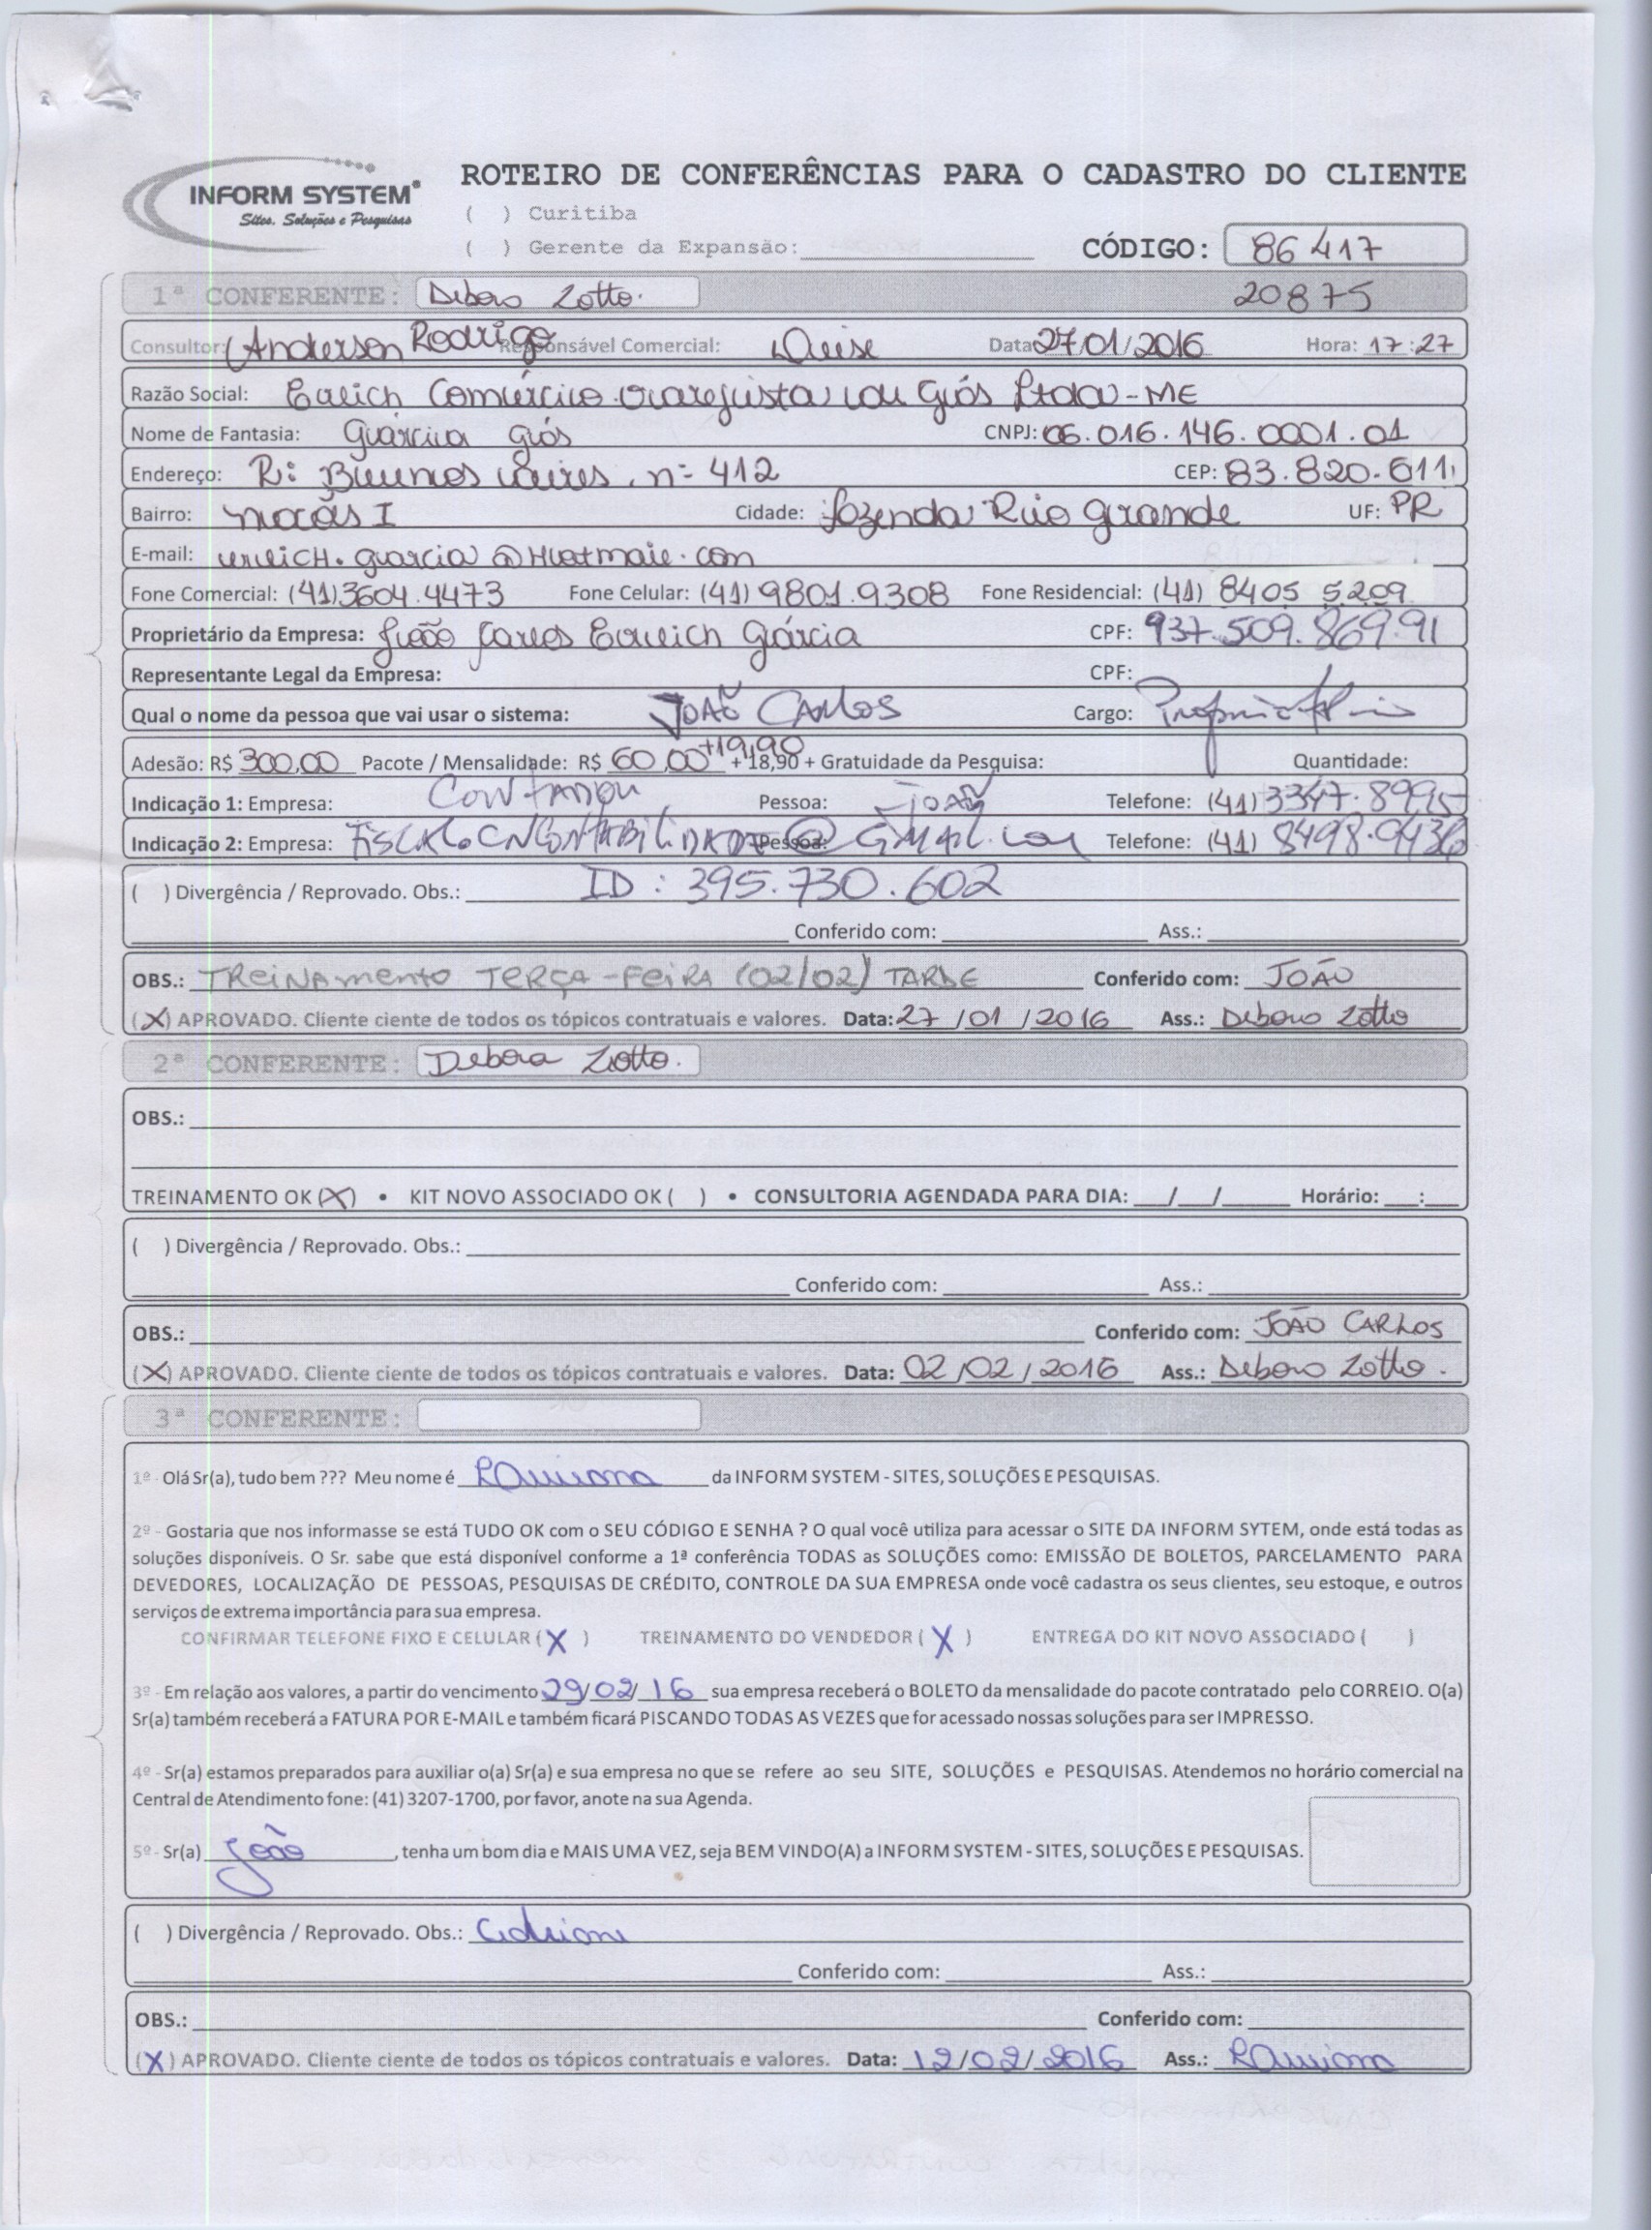 INFORM SYSTEM®
Sites. Soluções e Pesquisas
ROTEIRO DE CONFERÊNCIAS PARA O CADASTRO DO CLIENTE
( ) Curitiba
( ) Gerente da Expansão:
CÓDIGO: 86417
1ª CONFERENTE: Debora Zotto. 20875
Consultor: Anderson Rodrigo Responsável Comercial: Data: 27/01/2016 Hora: 17:27
Razão Social: Comércio varejista de Gás Ltda-ME
Nome de Fantasia: Garcia Gás CNPJ: 06.016.146.0001.01
Endereço: R: Buenos Aires, nº 412 CEP: 83.820.611
Bairro: Nações I Cidade: Fazenda Rio Grande UF: PR
E-mail:
Fone Comercial: (41) 3604.4473 Fone Celular: (41) 9801.9308 Fone Residencial: (41) 8405 5209
Proprietário da Empresa: João Carlos Garcia CPF: 937.509.869.91
Representante Legal da Empresa: CPF:
Qual o nome da pessoa que vai usar o sistema: JOÃO CARLOS Cargo: Proprietário
Adesão: R$ 300,00 Pacote / Mensalidade: R$ 60,00 +19,90 + 18,90 + Gratuidade da Pesquisa: Quantidade:
Indicação 1: Empresa: Contador Pessoa: JOÃO Telefone: (41) 3347.8995
Indicação 2: Empresa: FISCAL.CNCONTABILIDADE Pessoa: @GMAIL.com Telefone: (41) 8498.9436
( ) Divergência / Reprovado. Obs.: ID: 395.730.602
Conferido com: Ass.:
OBS.: TREINAMENTO TERÇA-FEIRA (02/02) TARDE Conferido com: JOÃO
(X) APROVADO. Cliente ciente de todos os tópicos contratuais e valores. Data: 27/01/2016 Ass.: Debora Zotto
2ª CONFERENTE: Debora Zotto.
OBS.:
TREINAMENTO OK (X) • KIT NOVO ASSOCIADO OK ( ) • CONSULTORIA AGENDADA PARA DIA: __/__/____ Horário: __:__
( ) Divergência / Reprovado. Obs.:
Conferido com: Ass.:
OBS.: Conferido com: JOÃO CARLOS
(X) APROVADO. Cliente ciente de todos os tópicos contratuais e valores. Data: 02/02/2016 Ass.: Debora Zotto.
3ª CONFERENTE:
1º - Olá Sr(a), tudo bem ??? Meu nome é da INFORM SYSTEM - SITES, SOLUÇÕES E PESQUISAS.
2º - Gostaria que nos informasse se está TUDO OK com o SEU CÓDIGO E SENHA ? O qual você utiliza para acessar o SITE DA INFORM SYTEM, onde está todas as
soluções disponíveis. O Sr. sabe que está disponível conforme a 1ª conferência TODAS as SOLUÇÕES como: EMISSÃO DE BOLETOS, PARCELAMENTO PARA
DEVEDORES, LOCALIZAÇÃO DE PESSOAS, PESQUISAS DE CRÉDITO, CONTROLE DA SUA EMPRESA onde você cadastra os seus clientes, seu estoque, e outros
serviços de extrema importância para sua empresa.
CONFIRMAR TELEFONE FIXO E CELULAR (X) TREINAMENTO DO VENDEDOR (X) ENTREGA DO KIT NOVO ASSOCIADO ( )
3º - Em relação aos valores, a partir do vencimento 29/02/16 sua empresa receberá o BOLETO da mensalidade do pacote contratado pelo CORREIO. O(a)
Sr(a) também receberá a FATURA POR E-MAIL e também ficará PISCANDO TODAS AS VEZES que for acessado nossas soluções para ser IMPRESSO.
4º - Sr(a) estamos preparados para auxiliar o(a) Sr(a) e sua empresa no que se refere ao seu SITE, SOLUÇÕES e PESQUISAS. Atendemos no horário comercial na
Central de Atendimento fone: (41) 3207-1700, por favor, anote na sua Agenda.
5º - Sr(a) João, tenha um bom dia e MAIS UMA VEZ, seja BEM VINDO(A) a INFORM SYSTEM - SITES, SOLUÇÕES E PESQUISAS.
( ) Divergência / Reprovado. Obs.:
Conferido com: Ass.:
OBS.: Conferido com:
(X) APROVADO. Cliente ciente de todos os tópicos contratuais e valores. Data: 12/02/2016 Ass.: